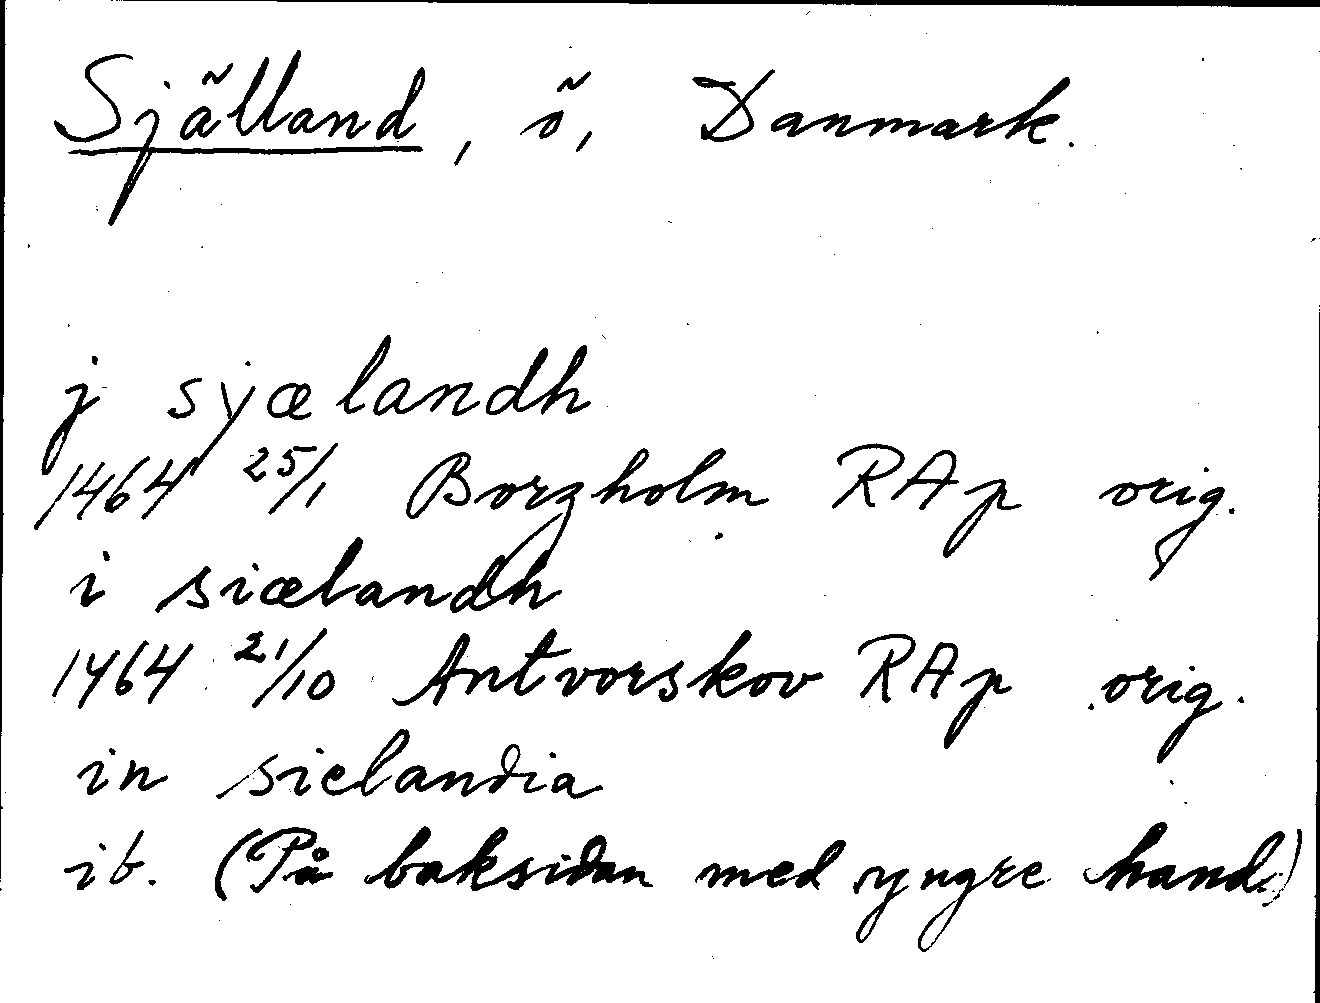 Själland, ö, Danmark.
j syælandh
1464 25/1 Borgholm RAp orig.
i siælandh
1464 21/10 Antvorskov RAp orig.
in sielandia
ib. (På baksidan med yngre hand.)